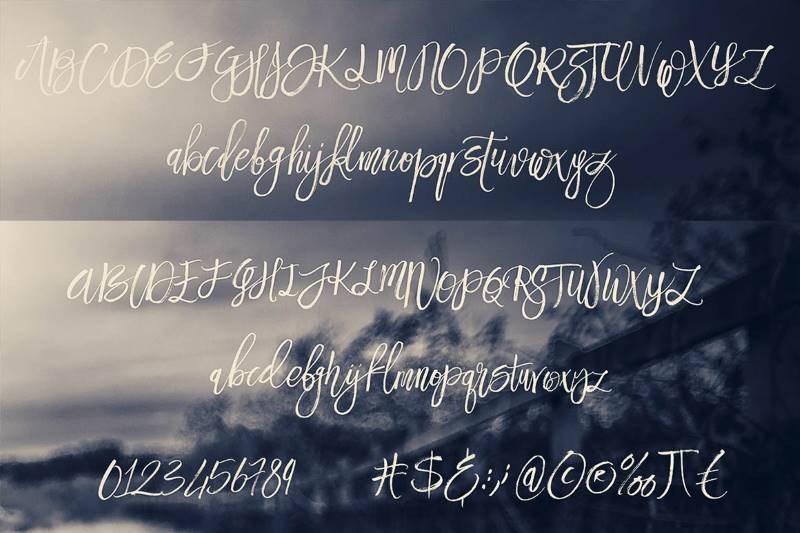 ABCDEFGHIJKLMNOPQRSTUVWXYZ
abcdefghijklmnopqrstuvwxyz
ABCDEFGHIJKLMNOPQRSTUVWXYZ
abcdefghijklmnopqrstuvwxyz
0123456789 #$&:;@©®‰π€